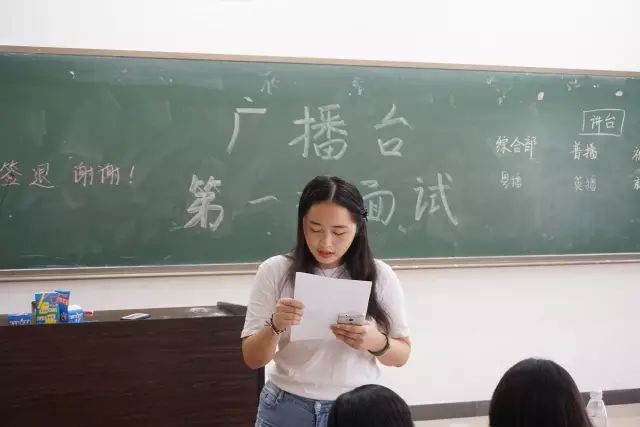 广播台
第一 面试
签退 谢谢！
讲台
综合部 普播
粤播 英播